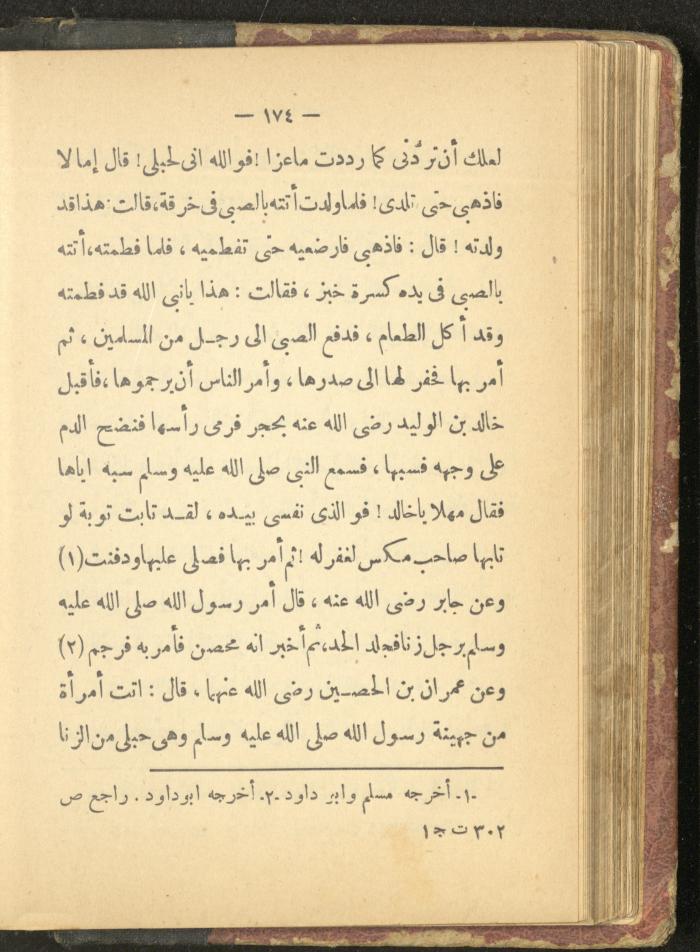 — ١٧٤ —
لعلك أن تردَّنى كما رددت ماعزا ! فو الله انى لحبلى ! قال إما لا
فاذهبى حتى تلدى ! فلما ولدت أتته بالصبى فى خرقة، قالت: هذا قد
ولدته ! قال : فاذهبى فارضعيه حتى تفطميه ، فلما فطمته، أتته
بالصبى فى يده كسرة خبز ، فقالت : هذا يانبى الله قد فطمته
وقد أكل الطعام ، فدفع الصبى الى رجـل من المسلمين ، ثم
أمر بها فحفر لها الى صدرها ، وأمر الناس أن يرجموها ، فأقبل
خالد بن الوليد رضى الله عنه بحجر فرمى رأسها فنضح الدم
على وجهه فسبها ، فسمع النبى صلى الله عليه وسلم سبه اياها
فقال مهلا ياخالد ! فو الذى نفسى بيـده ، لقـد تابت توبة لو
تابها صاحب مكس لغفر له ! ثم أمر بها فصلى عليها ودفنت (١)
وعن جابر رضى الله عنه ، قال أمر رسول الله صلى الله عليه
وسلم برجل زنا فجلد الحد، ثم أخبر انه محصن فأمر به فرجم (٢)
وعن عمران بن الحصـين رضى الله عنهما ، قال : اتت أمرأة
من جهينة رسول الله صلى الله عليه وسلم وهى حبلى من الزنا
-١- أخرجه مسلم وابر داود -٢- أخرجه ابوداود . راجع ص
٣٠٢ ت ج ١